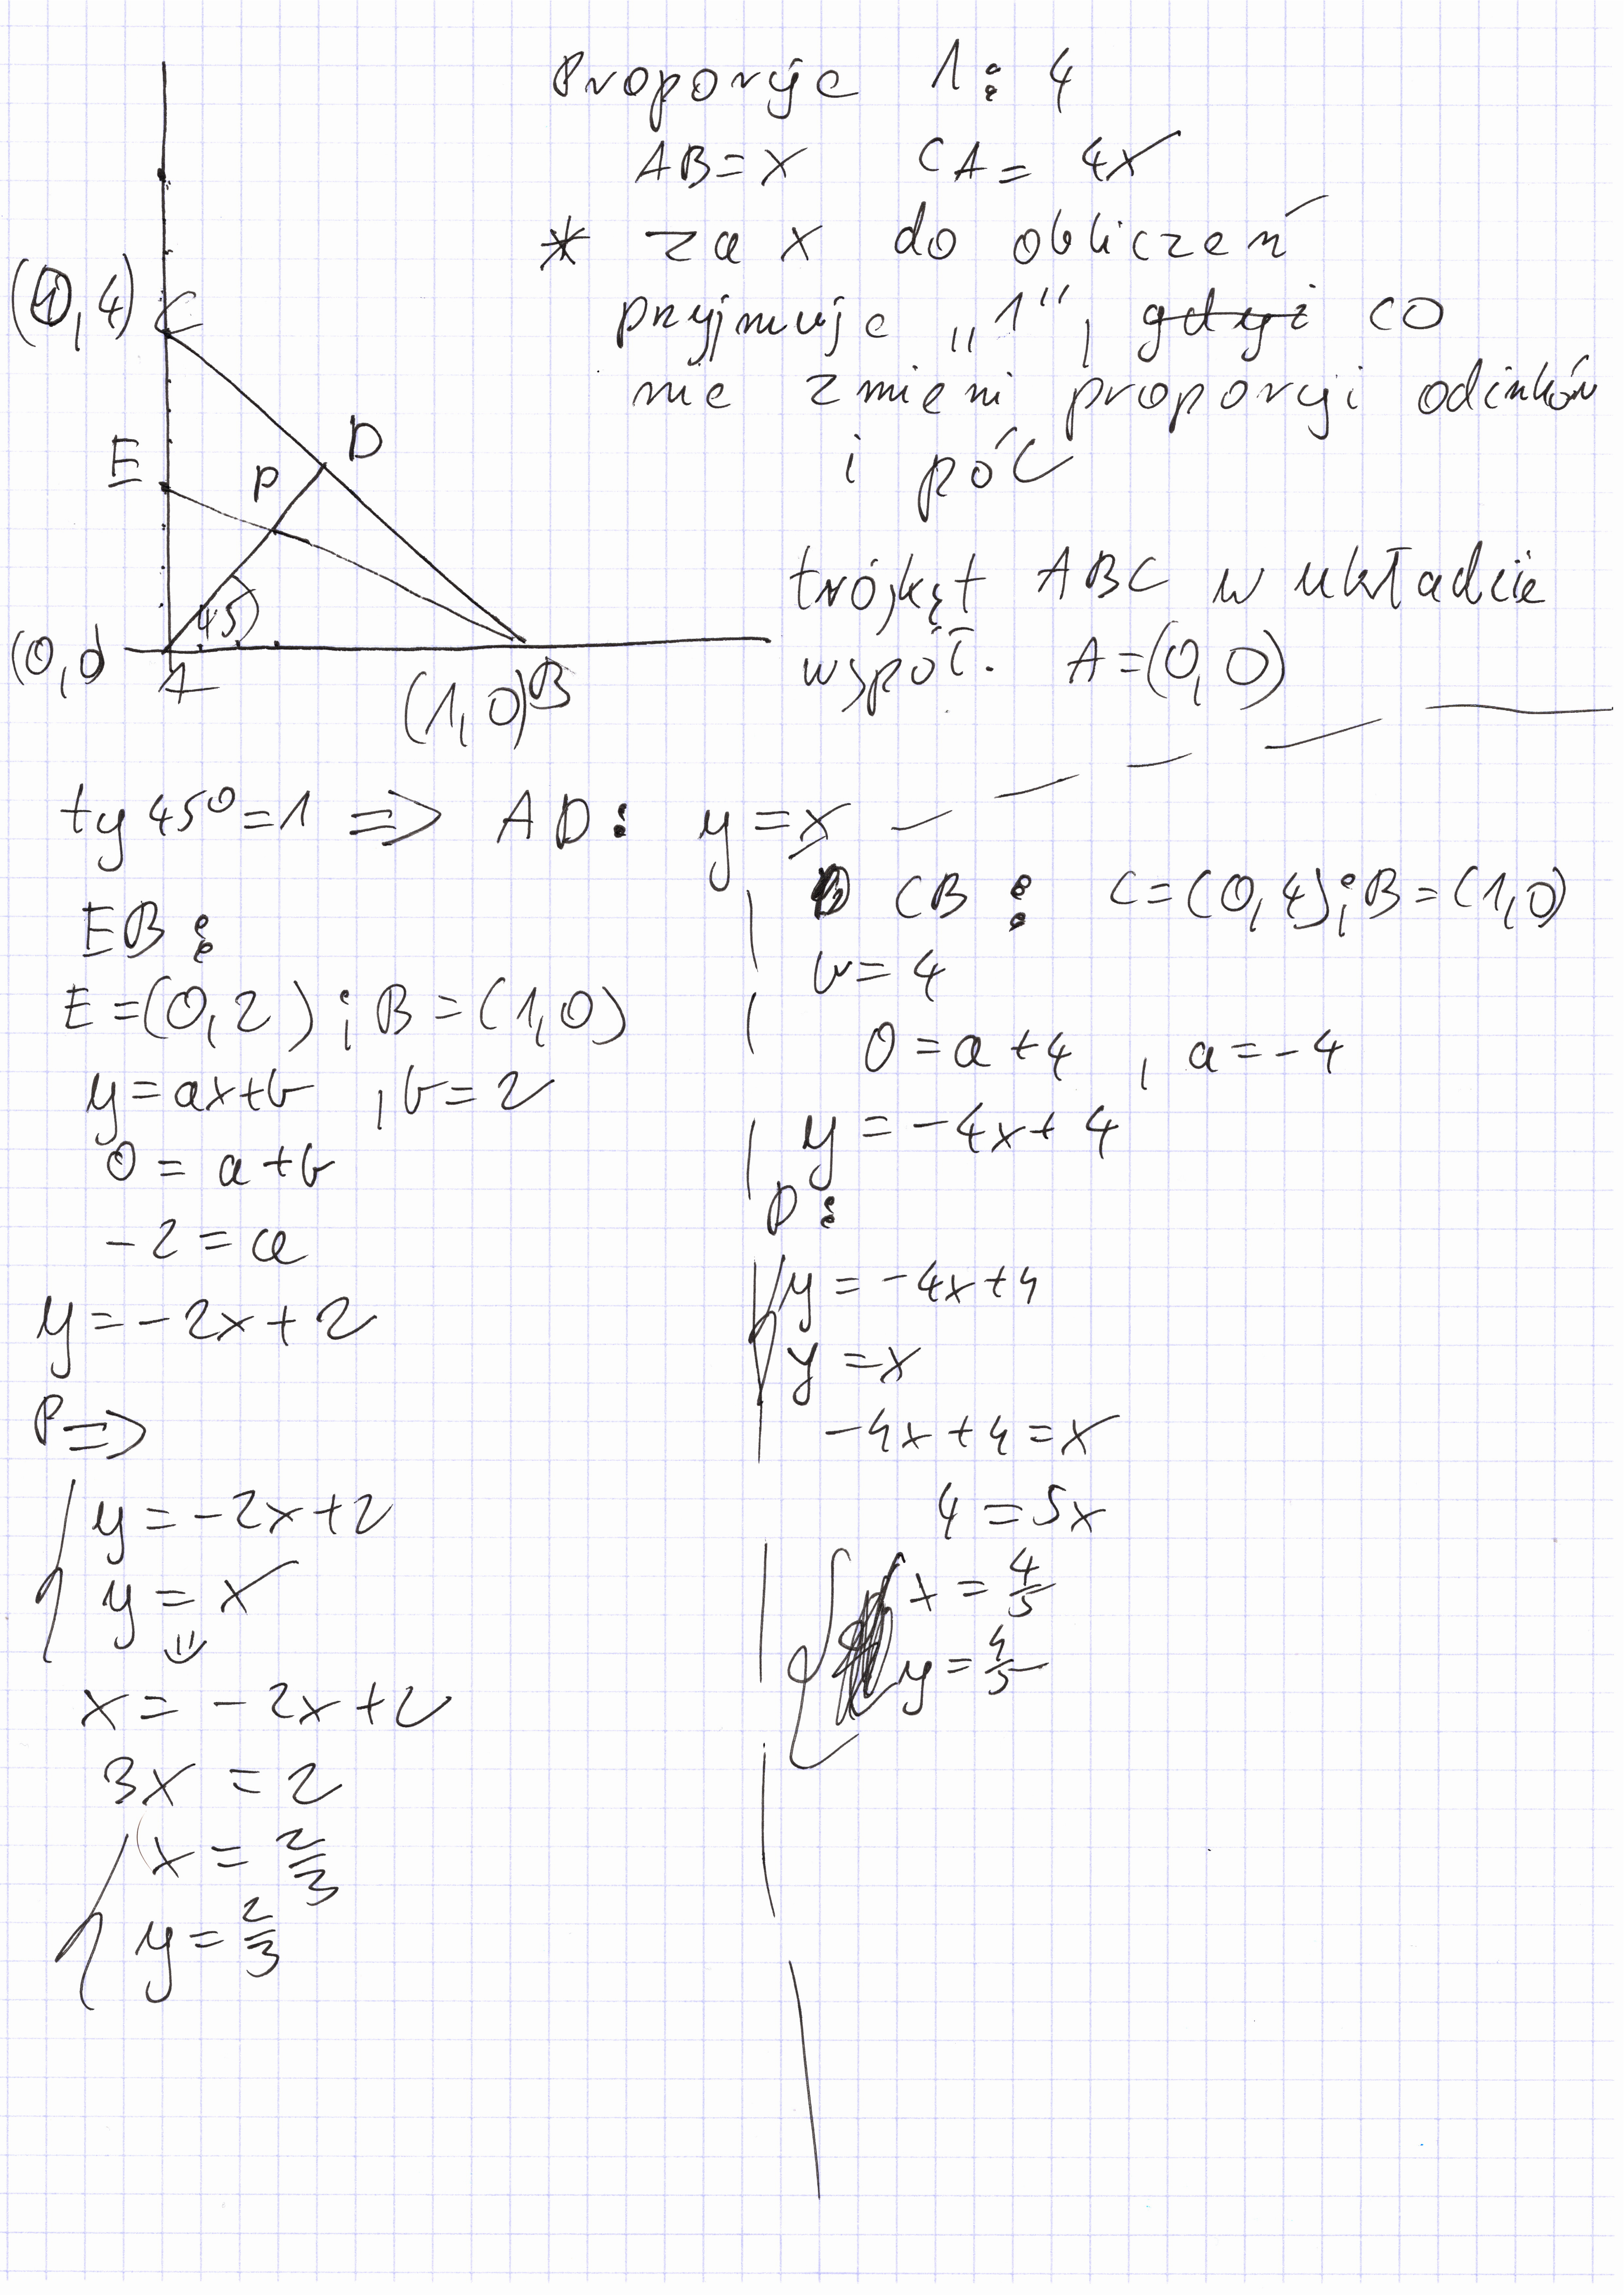 Proporcje 1:4
AB=x CA=4x
* za x do obliczeń
przyjmuje „1", gdyż co
nie zmieni proporcji odinków
i pól
trójkąt ABC w układzie
współ. A=(0,0)
(0,4) C
E P D
45
(0,0 A
(1,0) B
tg45°=1 => AD: y=x
EB:
E=(0,2); B=(1,0)
y=ax+b , b=2
0=a+b
-2=a
y=-2x+2
P=>
y=-2x+2
y=x
x=-2x+2
3x=2
x=2/3
y=2/3
CB: C=(0,4); B=(1,0)
b=4
0=a+4 , a=-4
y=-4x+4
D:
y=-4x+4
y=x
-4x+4=x
4=5x
x=4/5
y=4/5